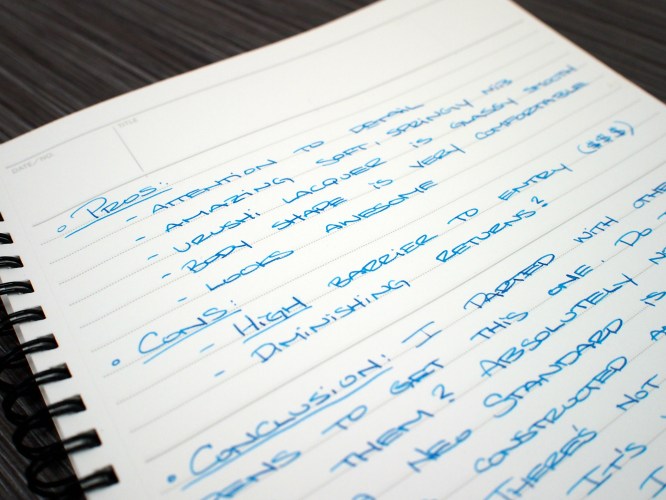 DATE/NO.
TITLE
• PROS:
- ATTENTION TO DETAIL
- AMAZING SOFT, SPRINGLY NIB
- URUSHI LACQUER IS GLASSY SMOOTH
- BODY SHAPE IS VERY COMFORTABLE
- LOOKS AWESOME
• CONS:
- HIGH BARRIER TO ENTRY ($$$)
- DIMINISHING RETURNS?
• CONCLUSION: I PARTED WITH OTHE
PENS TO GET THIS ONE. DO
THEM? ABSOLUTELY NO
NEO STANDARD IS
CONSTRUCTED A
THERE'S NOT
IT'S
I